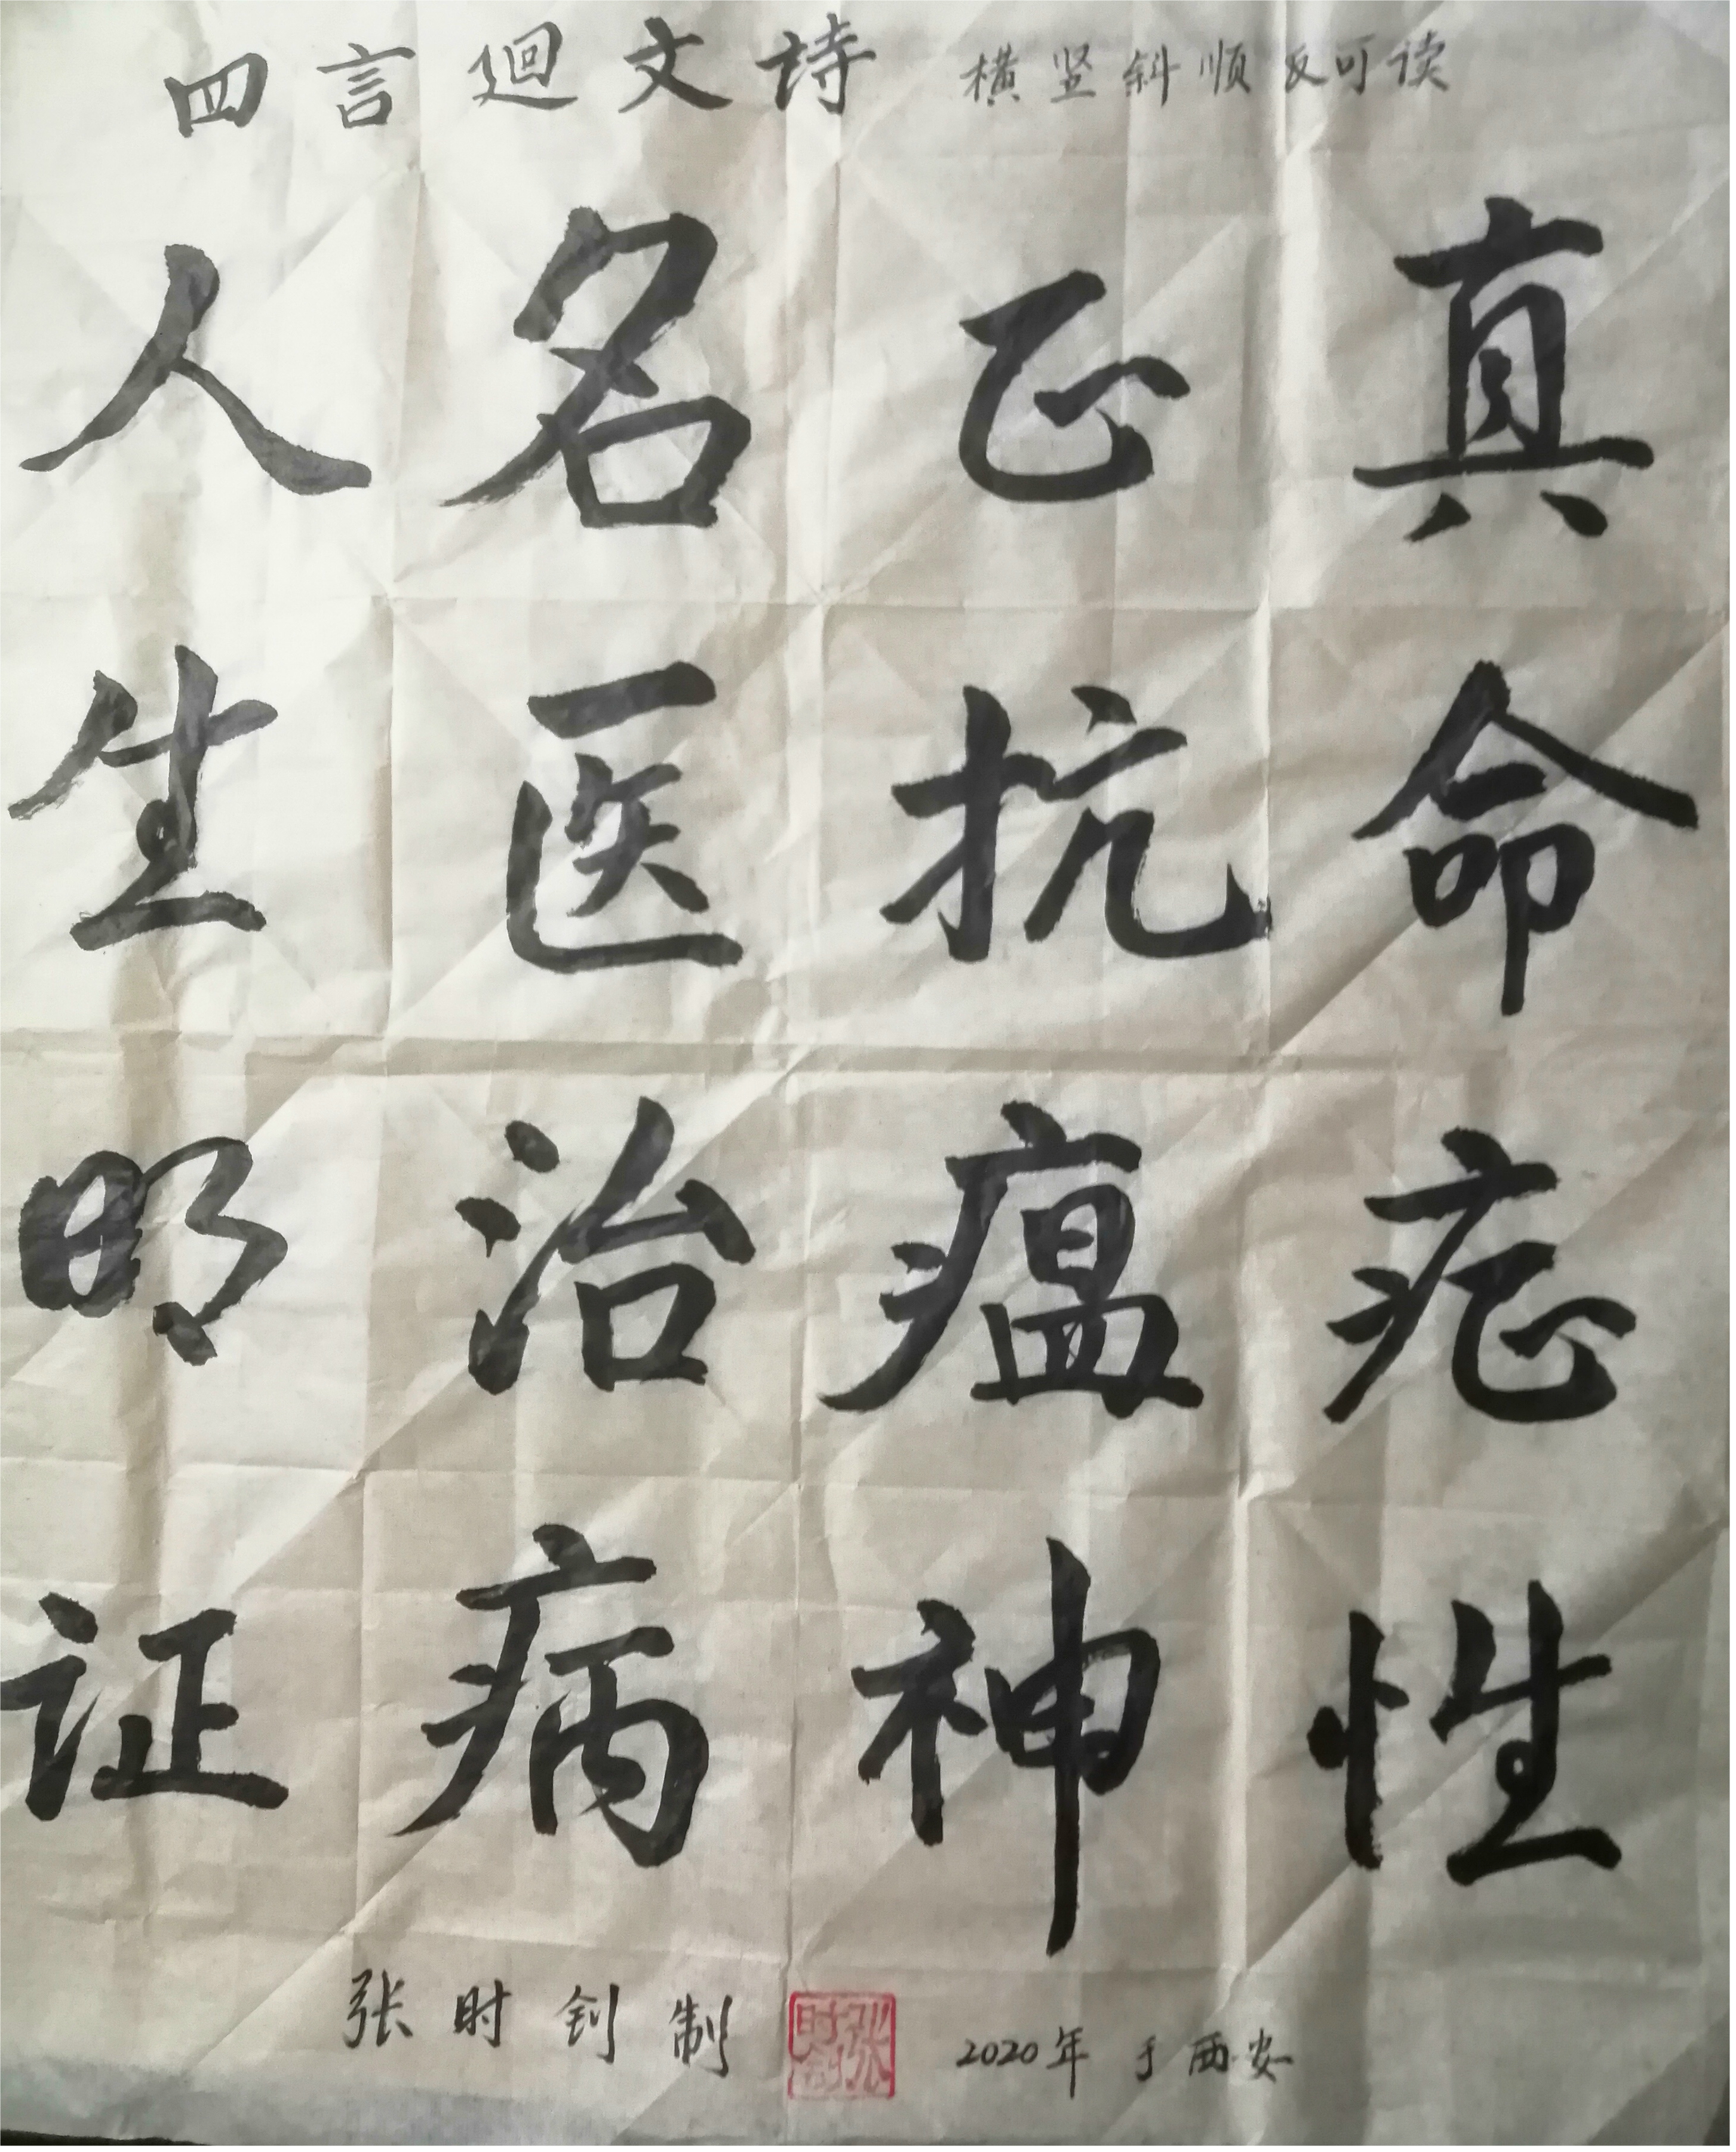 四言迴文诗 横竖斜顺反可读
人名正真
生医抗命
明治瘟症
证病神性
张时钊制 张时钊 2020年于西安